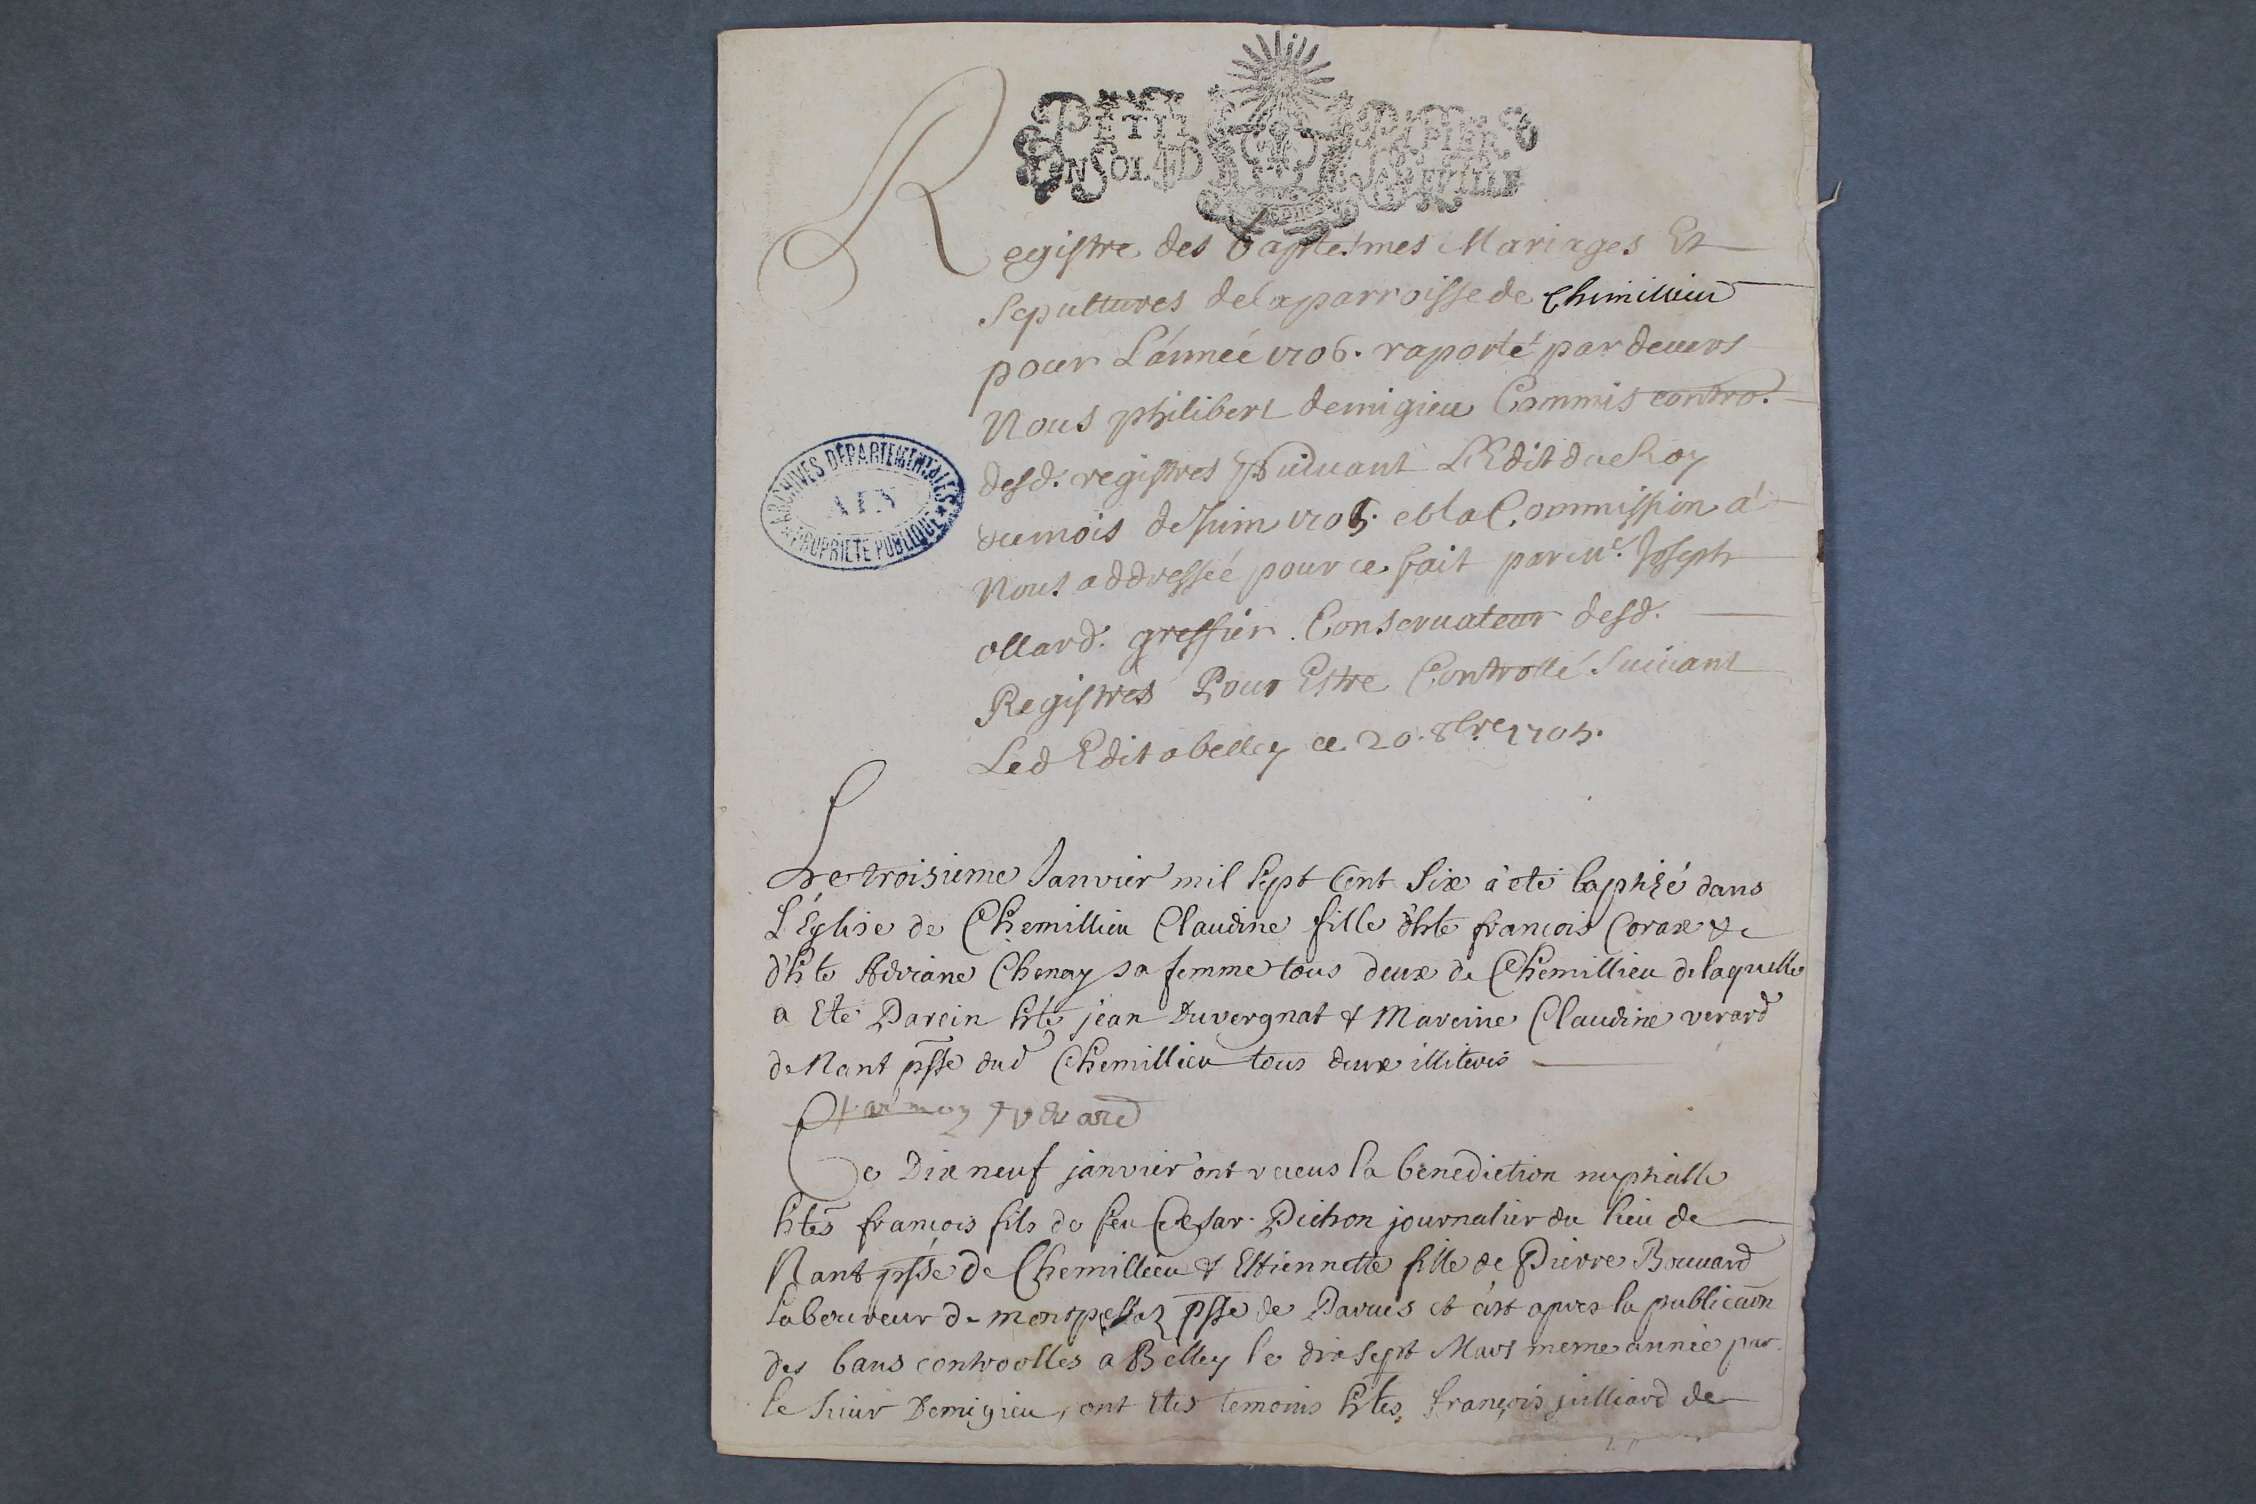 PETIT PAPIER
UN SOL 4 D LA FEUILLE
Registre des baptesmes Mariages Et
Sepultures de la parroisse de Chimillieu
pour L'année 1706. raporté pardevers
Nous philibert demigieu Commis contro.
desd. registres Suivant L'Edit du Roy
du mois de Juin 1705. et la Commission a
Nous addressée pour ce fait par Me. Joseph
ollard. greffier Conservateur desd.
Registres Pour Estre Controllé Suivant
Led Edit a belley ce 20. 8bre 1705.
ARCHIVES DÉPARTEMENTALES
AIN
PROPRIÉTÉ PUBLIQUE
Le troisieme Janvier mil sept Cent Six a eté baptizé dans
L'Eglise de Chemillieu Claudine fille d'hte francois Corax &
d'hte Adriane Chenay sa femme tous deux de Chemillieu de laquelle
a Ete Parein hte jean Duvergnat & Mareine Claudine verard
de Nant psse dud Chemillieu tous deux illiterés
par moy verard
Le Dix neuf janvier ont receus la benediction nuptialle
htes francois fils de feu Cesar Pichon journalier du lieu de
Nant psse de Chemillieu & Estiennette fille de Pierre Bouvard
laboureur de montpessaz psse de Parues et c'est apres la publicaon
des bans controolles a Belley le dix sept Mars meme année par
le sieur Demigieu, ont etes temoins htes, françois julliard de